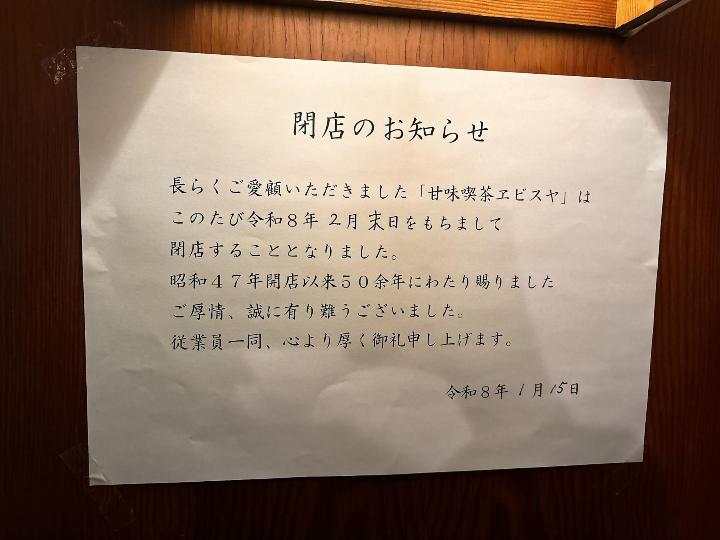 閉店のお知らせ
長らくご愛顧いただきました「甘味喫茶ヱビスヤ」は
このたび令和８年 2月 末日をもちまして
閉店することとなりました。
昭和４７年開店以来５０余年にわたり賜りました
ご厚情、誠に有り難うございました。
従業員一同、心より厚く御礼申し上げます。
令和８年 1月 15日